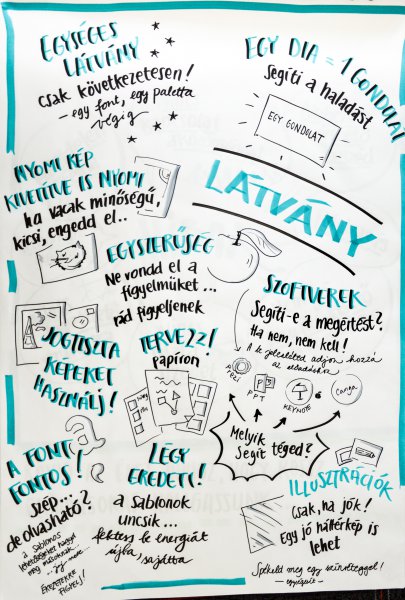 EGYSÉGES
LÁTVÁNY
csak következetesen!
– egy font, egy paletta
végig
EGY DIA = 1 GONDOLAT
Segíti a haladást
EGY GONDOLAT
NYOMI KÉP
KIVETÍTVE IS NYOMI
ha vacak minőségű,
kicsi, engedd el..
LÁTVÁNY
EGYSZERŰSÉG
Ne vondd el a
figyelmüket...
rád figyeljenek
SZOFTVEREK
Segíti-e a megértést?
Ha nem, nem kell!
A te jelenléted adjon hozzá
az előadáshoz
PREZI
PPT
KEYNOTE
Canva
Melyik
Segít téged?
JOGTISZTA
KÉPEKET
HASZNÁLJ!
TERVEZZ!
papíron
a
a
A FONT
FONTOS!
szép...
de olvasható?
a sablonos
lehetőségeket hagyd
meg másoknak...
ÉKEZETEKRE
FIGYELJ!
LÉGY
EREDETI!
a sablonok
uncsik...
fektess be energiát
újba, sajátba
ILLUSZTRÁCIÓK
Csak, ha jók!
Egy jó háttérkép is
lehet
egyéni